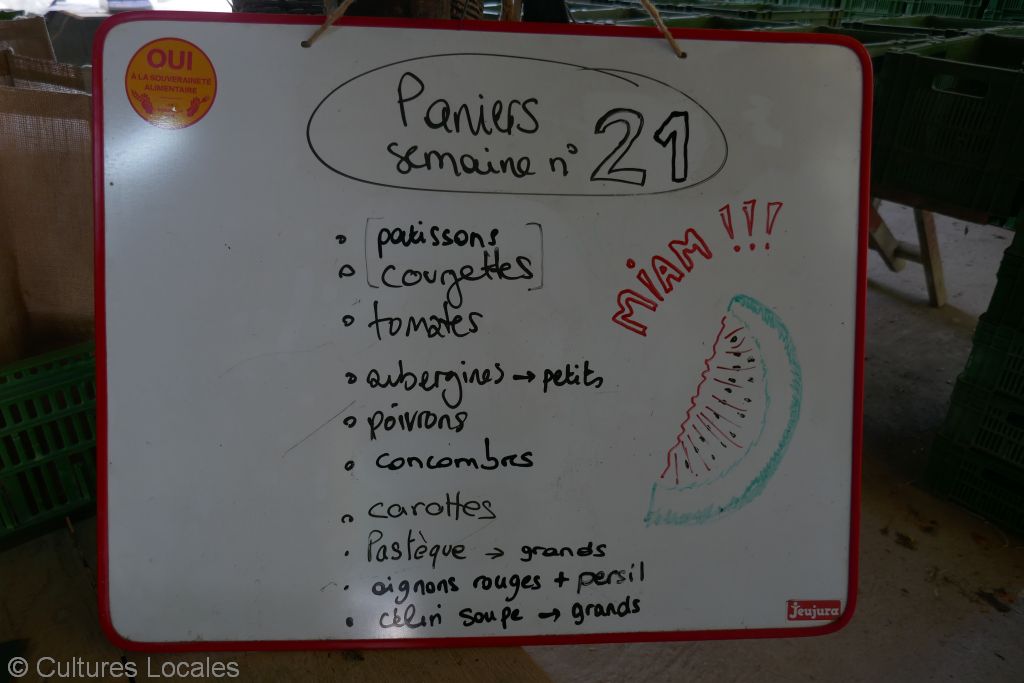 OUI
À LA SOUVERAINETÉ
ALIMENTAIRE
Paniers
semaine n° 21
MIAM !!!
patissons
courgettes
tomates
aubergines → petits
poivrons
concombres
carottes
Pastèque → grands
oignons rouges + persil
céleri soupe → grands
Jeujura
© Cultures Locales